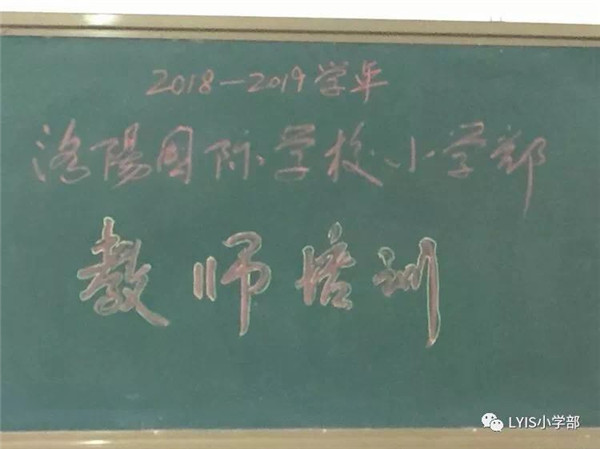 2018—2019学年
洛陽国际学校小学部
教师培训
LYIS小学部